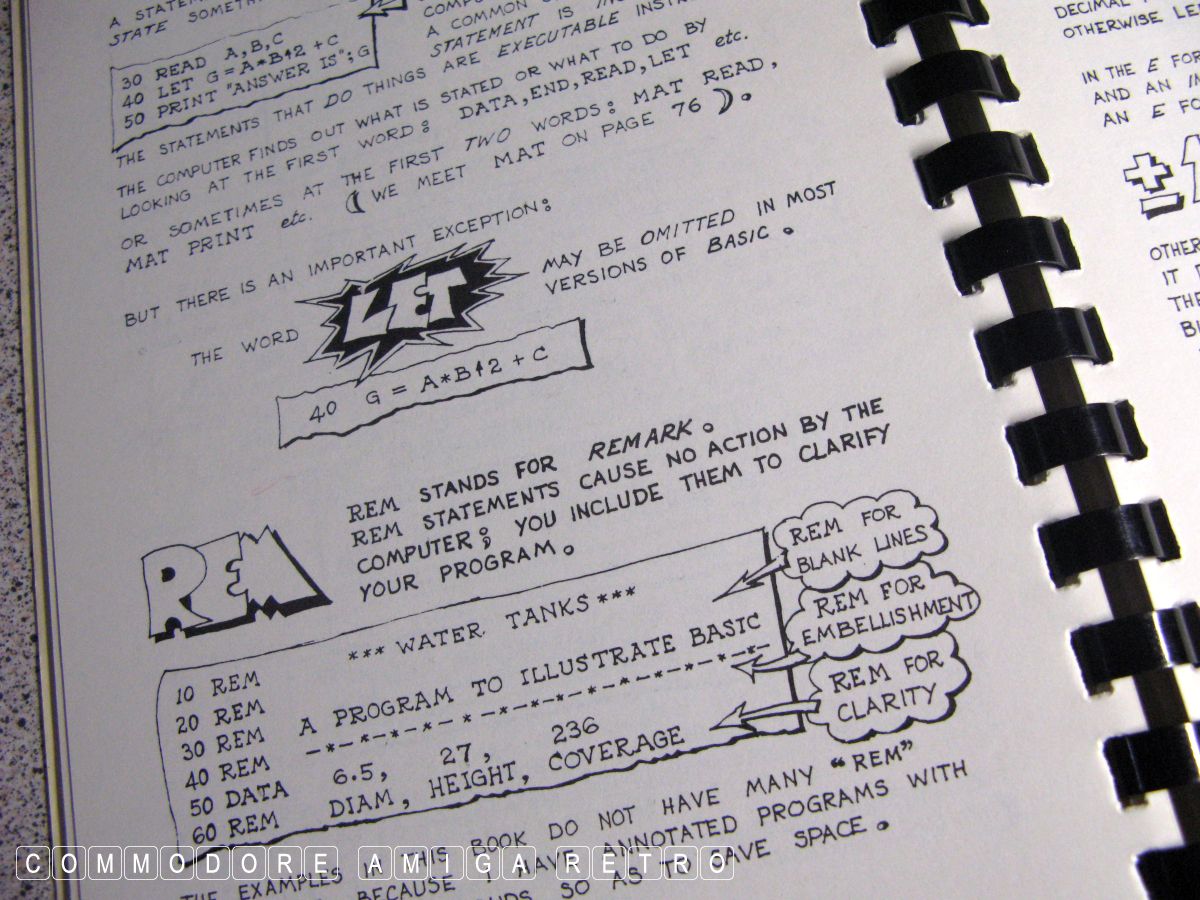 A STATEM
STATE SOMETH
COMPU
A COMMON
STATEMENT IS
30 READ A,B,C
40 LET G=A*B↑2 + C
50 PRINT "ANSWER IS"; G
THE STATEMENTS THAT DO THINGS ARE EXECUTABLE INSTR
THE COMPUTER FINDS OUT WHAT IS STATED OR WHAT TO DO BY
LOOKING AT THE FIRST WORD: DATA, END, READ, LET etc.
OR SOMETIMES AT THE FIRST TWO WORDS: MAT READ,
MAT PRINT etc. (WE MEET MAT ON PAGE 76).
BUT THERE IS AN IMPORTANT EXCEPTION:
THE WORD LET MAY BE OMITTED IN MOST
VERSIONS OF BASIC.
40 G = A*B↑2 + C
REM
REM STANDS FOR REMARK.
REM STATEMENTS CAUSE NO ACTION BY THE
COMPUTER; YOU INCLUDE THEM TO CLARIFY
YOUR PROGRAM.
10 REM
20 REM *** WATER TANKS ***
30 REM A PROGRAM TO ILLUSTRATE BASIC
40 REM -*-*-*-*-*-*-*-*-*-*-*-
50 DATA 6.5, 27, 236
60 REM DIAM, HEIGHT, COVERAGE
REM FOR
BLANK LINES
REM FOR
EMBELLISHMENT
REM FOR
CLARITY
THE EXAMPLES IN THIS BOOK DO NOT HAVE MANY "REM"
BECAUSE I HAVE ANNOTATED PROGRAMS WITH
SO AS TO SAVE SPACE.
DECIMAL
OTHERWISE
IN THE E FOR
AND AN
AN E FO
±1
OTHER
IT
THE
COMMODORE AMIGA RETRO